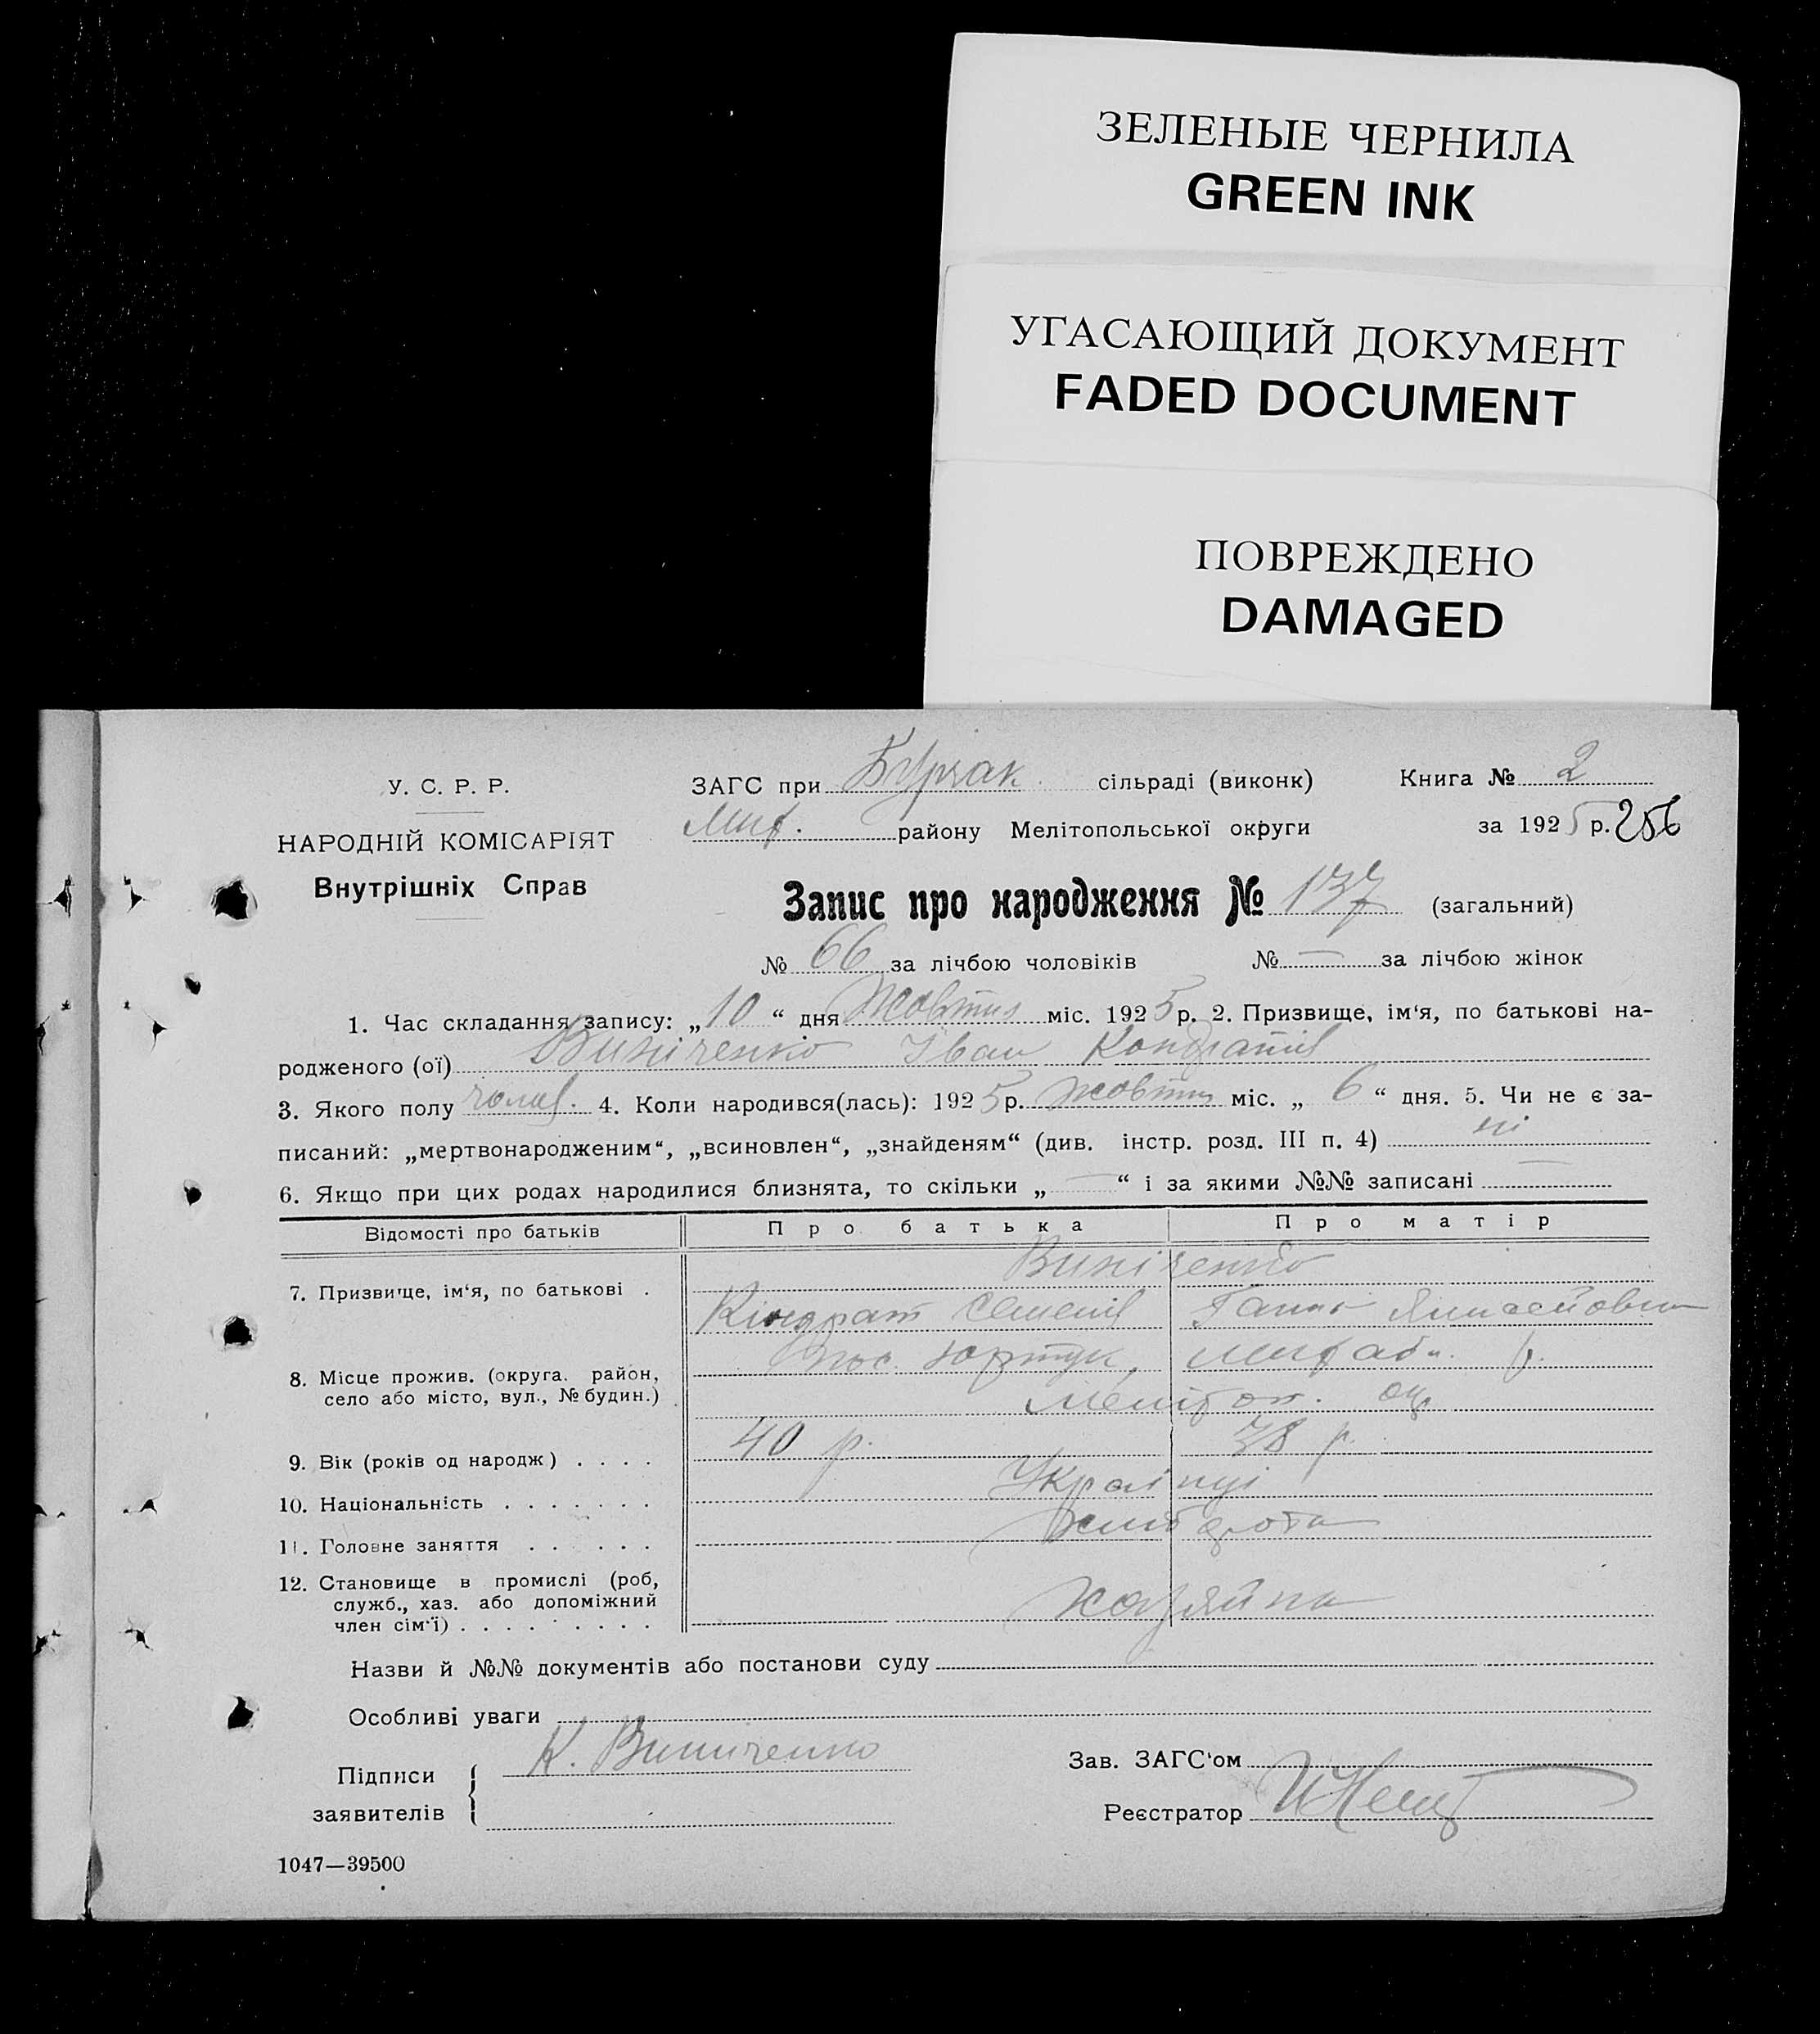 ЗЕЛЕНЫЕ ЧЕРНИЛА
GREEN INK
УГАСАЮЩИЙ ДОКУМЕНТ
FADED DOCUMENT
ПОВРЕЖДЕНО
DAMAGED
У. С. Р. Р.
НАРОДНІЙ КОМІСАРІЯТ
Внутрішніх Справ
ЗАГС при Бурчак сільраді (виконк) Книга № 2
району Мелітопольської округи за 1925 р. 256
Запис про народження № 137 (загальний)
№ 66 за лічбою чоловіків № — за лічбою жінок
1. Час складання запису: „10“ дня Жовтня міс. 1925 р. 2. Призвище, ім‘я, по батькові на-
родженого (ої) Виніченко Іван Кондратів
3. Якого полу чолов. 4. Коли народився(лась): 1925 р. жовтня міс. „ 6 “ дня. 5. Чи не є за-
писаний: „мертвонародженим“, „всиновлен“, „знайденям“ (див. інстр. розд. III п. 4) ні
6. Якщо при цих родах народилися близнята, то скільки „ — “ і за якими №№ записані —
Відомості про батьків Про батька Про матір
7. Призвище, ім‘я, по батькові . Виніченко
Кіндрат Семенів Ганна
8. Місце прожив. (округа. район, село або місто, вул., № будин.) пос. Юртук,
Меліtoп. окр
9. Вік (років од народж) . . . . 40 р. 38 р.
10. Національність . . . . . . . Українці
11. Головне заняття . . . . . .
12. Становище в промислі (роб, служб., хаз. або допоміжний член сім‘ї) . . . . . . . . . хазяйна
Назви й №№ документів або постанови суду
Особливі уваги
Підписи заявителів К. Виниченко
Зав. ЗАГС‘ом
Реєстратор
1047—39500